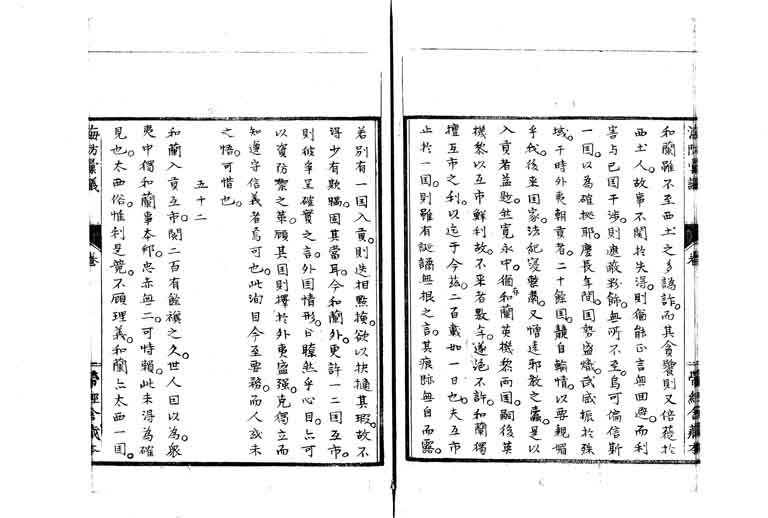 和蘭雖不至西土之多譌詐。而其貪饕則又倍蓰於
西土人。故事不關於失得。則猶能正言無回避。而利
害与已国干涉。則遮蔽彩飾。無所不至。烏可偏信斯
一国。以為確拠耶。慶長年間。国勢盛熾。武威振於殊
域。于時外夷朝貢者。二十餘国。競自輸情。以要親媚
乎我。後来国家法紀寝整肅。又憎逹邪教之蠹。是以
入貢者益尠。然寛永中。猶和蘭英機黎両国。嗣後英
機黎以互市鮮利。故不来者数年。遂絶不許。和蘭獨
擅互市之利。以迄于今茲。二百載如一日也。夫互市
止於一国。則雖有誕譎無根之言。其痕跡無自而露。
若別有一国入貢。則迭相點検。欲以抉擿其瑕。故不
得少有欺瞞。固其當耳。今和蘭外。更許一二国互市。
則彼爭呈確實之言。外国情形。日瞭然乎心目。亦可
以資防禦之策。顧其国則擇於外夷盛强克獨立而
知遵守信義者焉可也。此洵目今至要務。而人或未
之悟。可惜也。
五十二
和蘭入貢互市。閲二百有餘禩之久。世人因以為。衆
夷中獨和蘭事本邦。忠赤無二可恃頼。此未得為確
見也。太西俗惟利是競。不顧理義。和蘭亦太西一国。
海防彙議
卷
營經舍蔵本